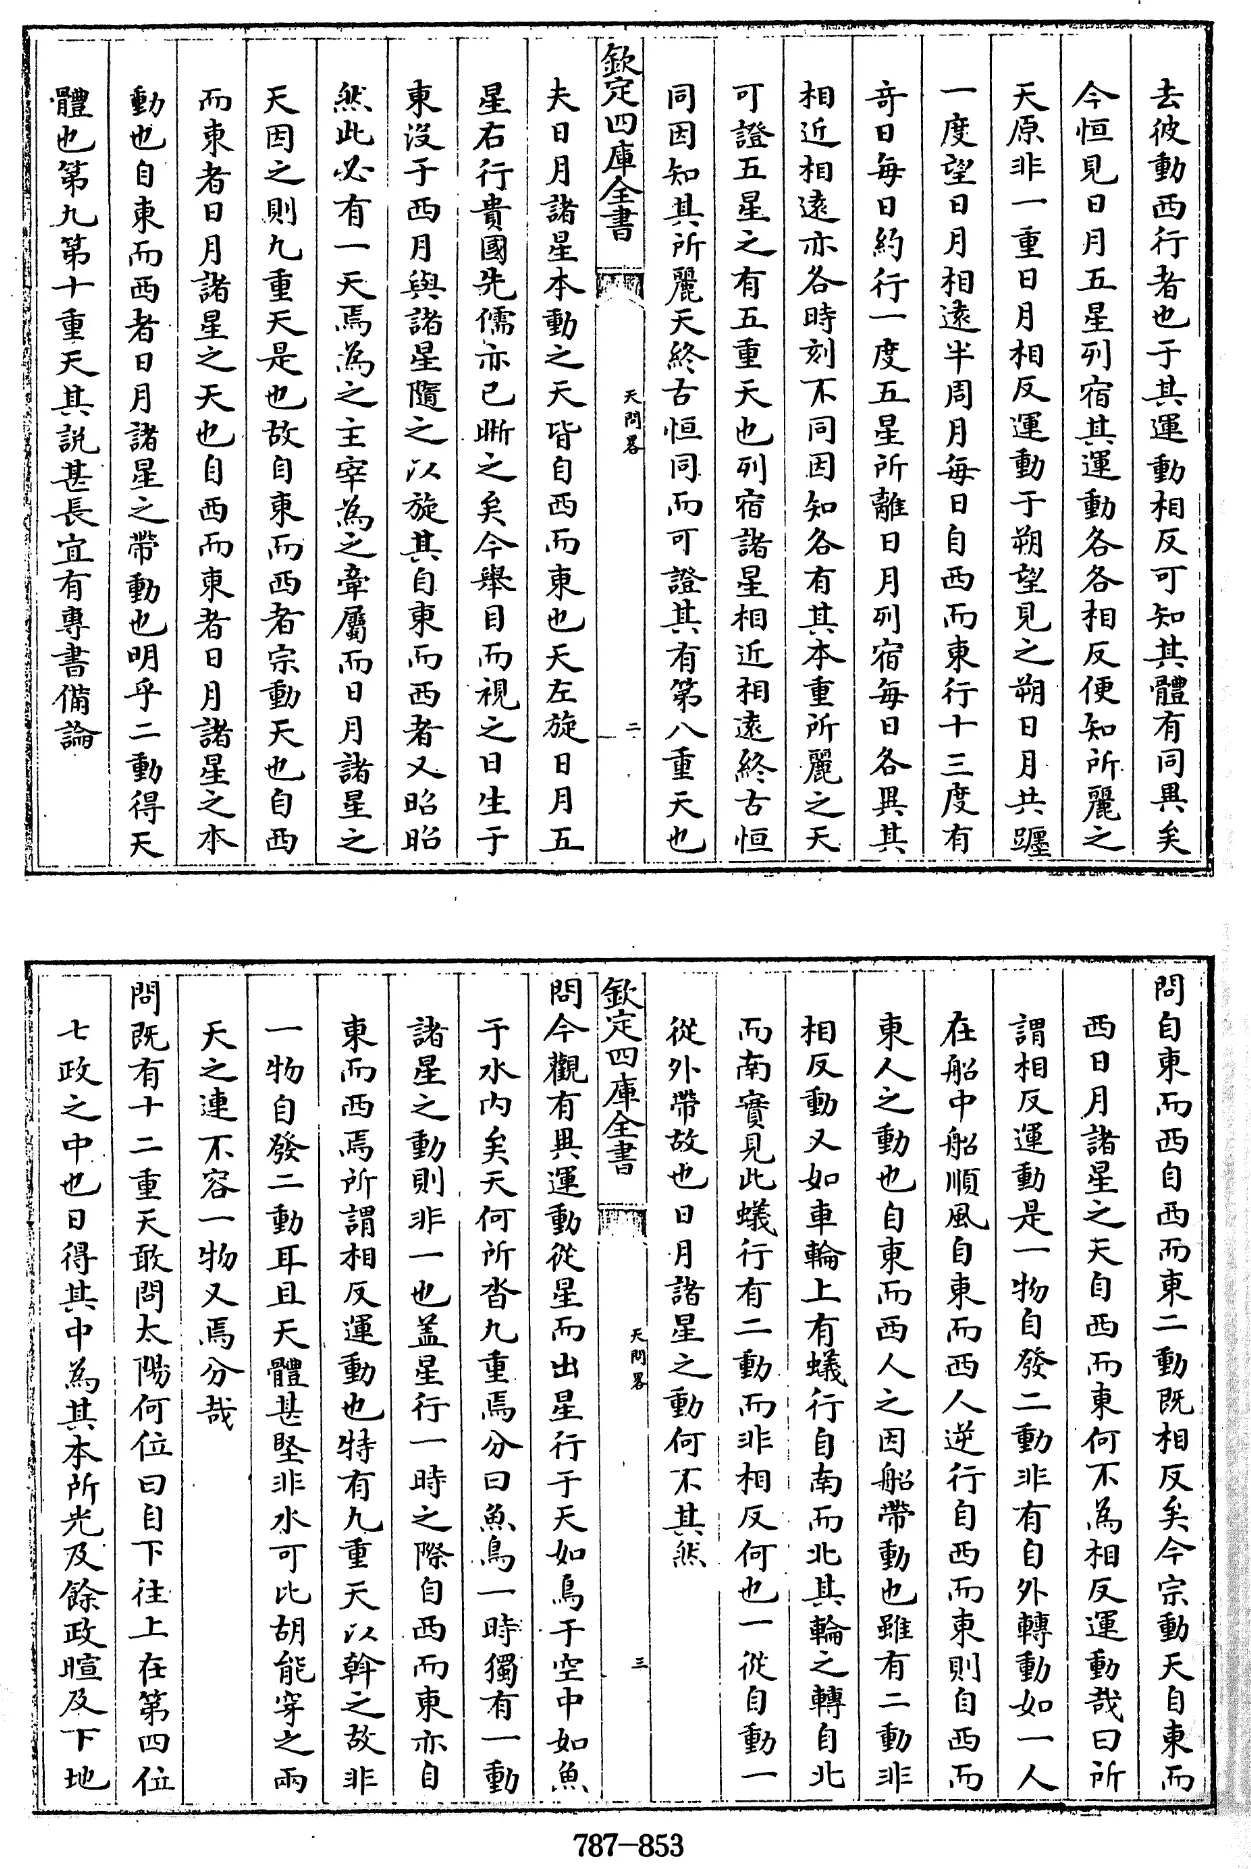 去彼動西行者也于其運動相反可知其體有同異矣
今恒見日月五星列宿其運動各各相反便知所麗之
天原非一重日月相反運動于朔望見之朔日月共躔
一度望日月相遠半周月每日自西而東行十三度有
奇日每日約行一度五星所離日月列宿每日各異其
相近相遠亦各時刻不同因知各有其本重所麗之天
可證五星之有五重天也列宿諸星相近相遠終古恒
同因知其所麗天終古恒同而可證其有第八重天也
欽定四庫全書
天問畧
二
夫日月諸星本動之天皆自西而東也天左旋日月五
星右行貴國先儒亦已晰之矣今舉目而視之日生于
東沒于西月與諸星隨之以旋其自東而西者又昭昭
然此必有一天焉為之主宰為之牽屬而日月諸星之
天因之則九重天是也故自東而西者宗動天也自西
而東者日月諸星之天也自西而東者日月諸星之本
動也自東而西者日月諸星之帶動也明乎二動得天
體也第九第十重天其說甚長宜有專書備論
問自東而西自西而東二動既相反矣今宗動天自東而
西日月諸星之天自西而東何不為相反運動哉曰所
謂相反運動是一物自發二動非有自外轉動如一人
在船中船順風自東而西人逆行自西而東則自西而
東人之動也自東而西人之因船帶動也雖有二動非
相反動又如車輪上有蟻行自南而北其輪之轉自北
而南實見此蟻行有二動而非相反何也一從自動一
從外帶故也日月諸星之動何不其然
欽定四庫全書
天問畧
三
問今觀有異運動從星而出星行于天如鳥于空中如魚
于水內矣天何所沓九重焉分曰魚鳥一時獨有一動
諸星之動則非一也蓋星行一時之際自西而東亦自
東而西焉所謂相反運動也特有九重天以斡之故非
一物自發二動耳且天體甚堅非水可比胡能穿之兩
天之連不容一物又焉分哉
問既有十二重天敢問太陽何位曰自下往上在第四位
七政之中也日得其中為其本所光及餘政暄及下地
787-853